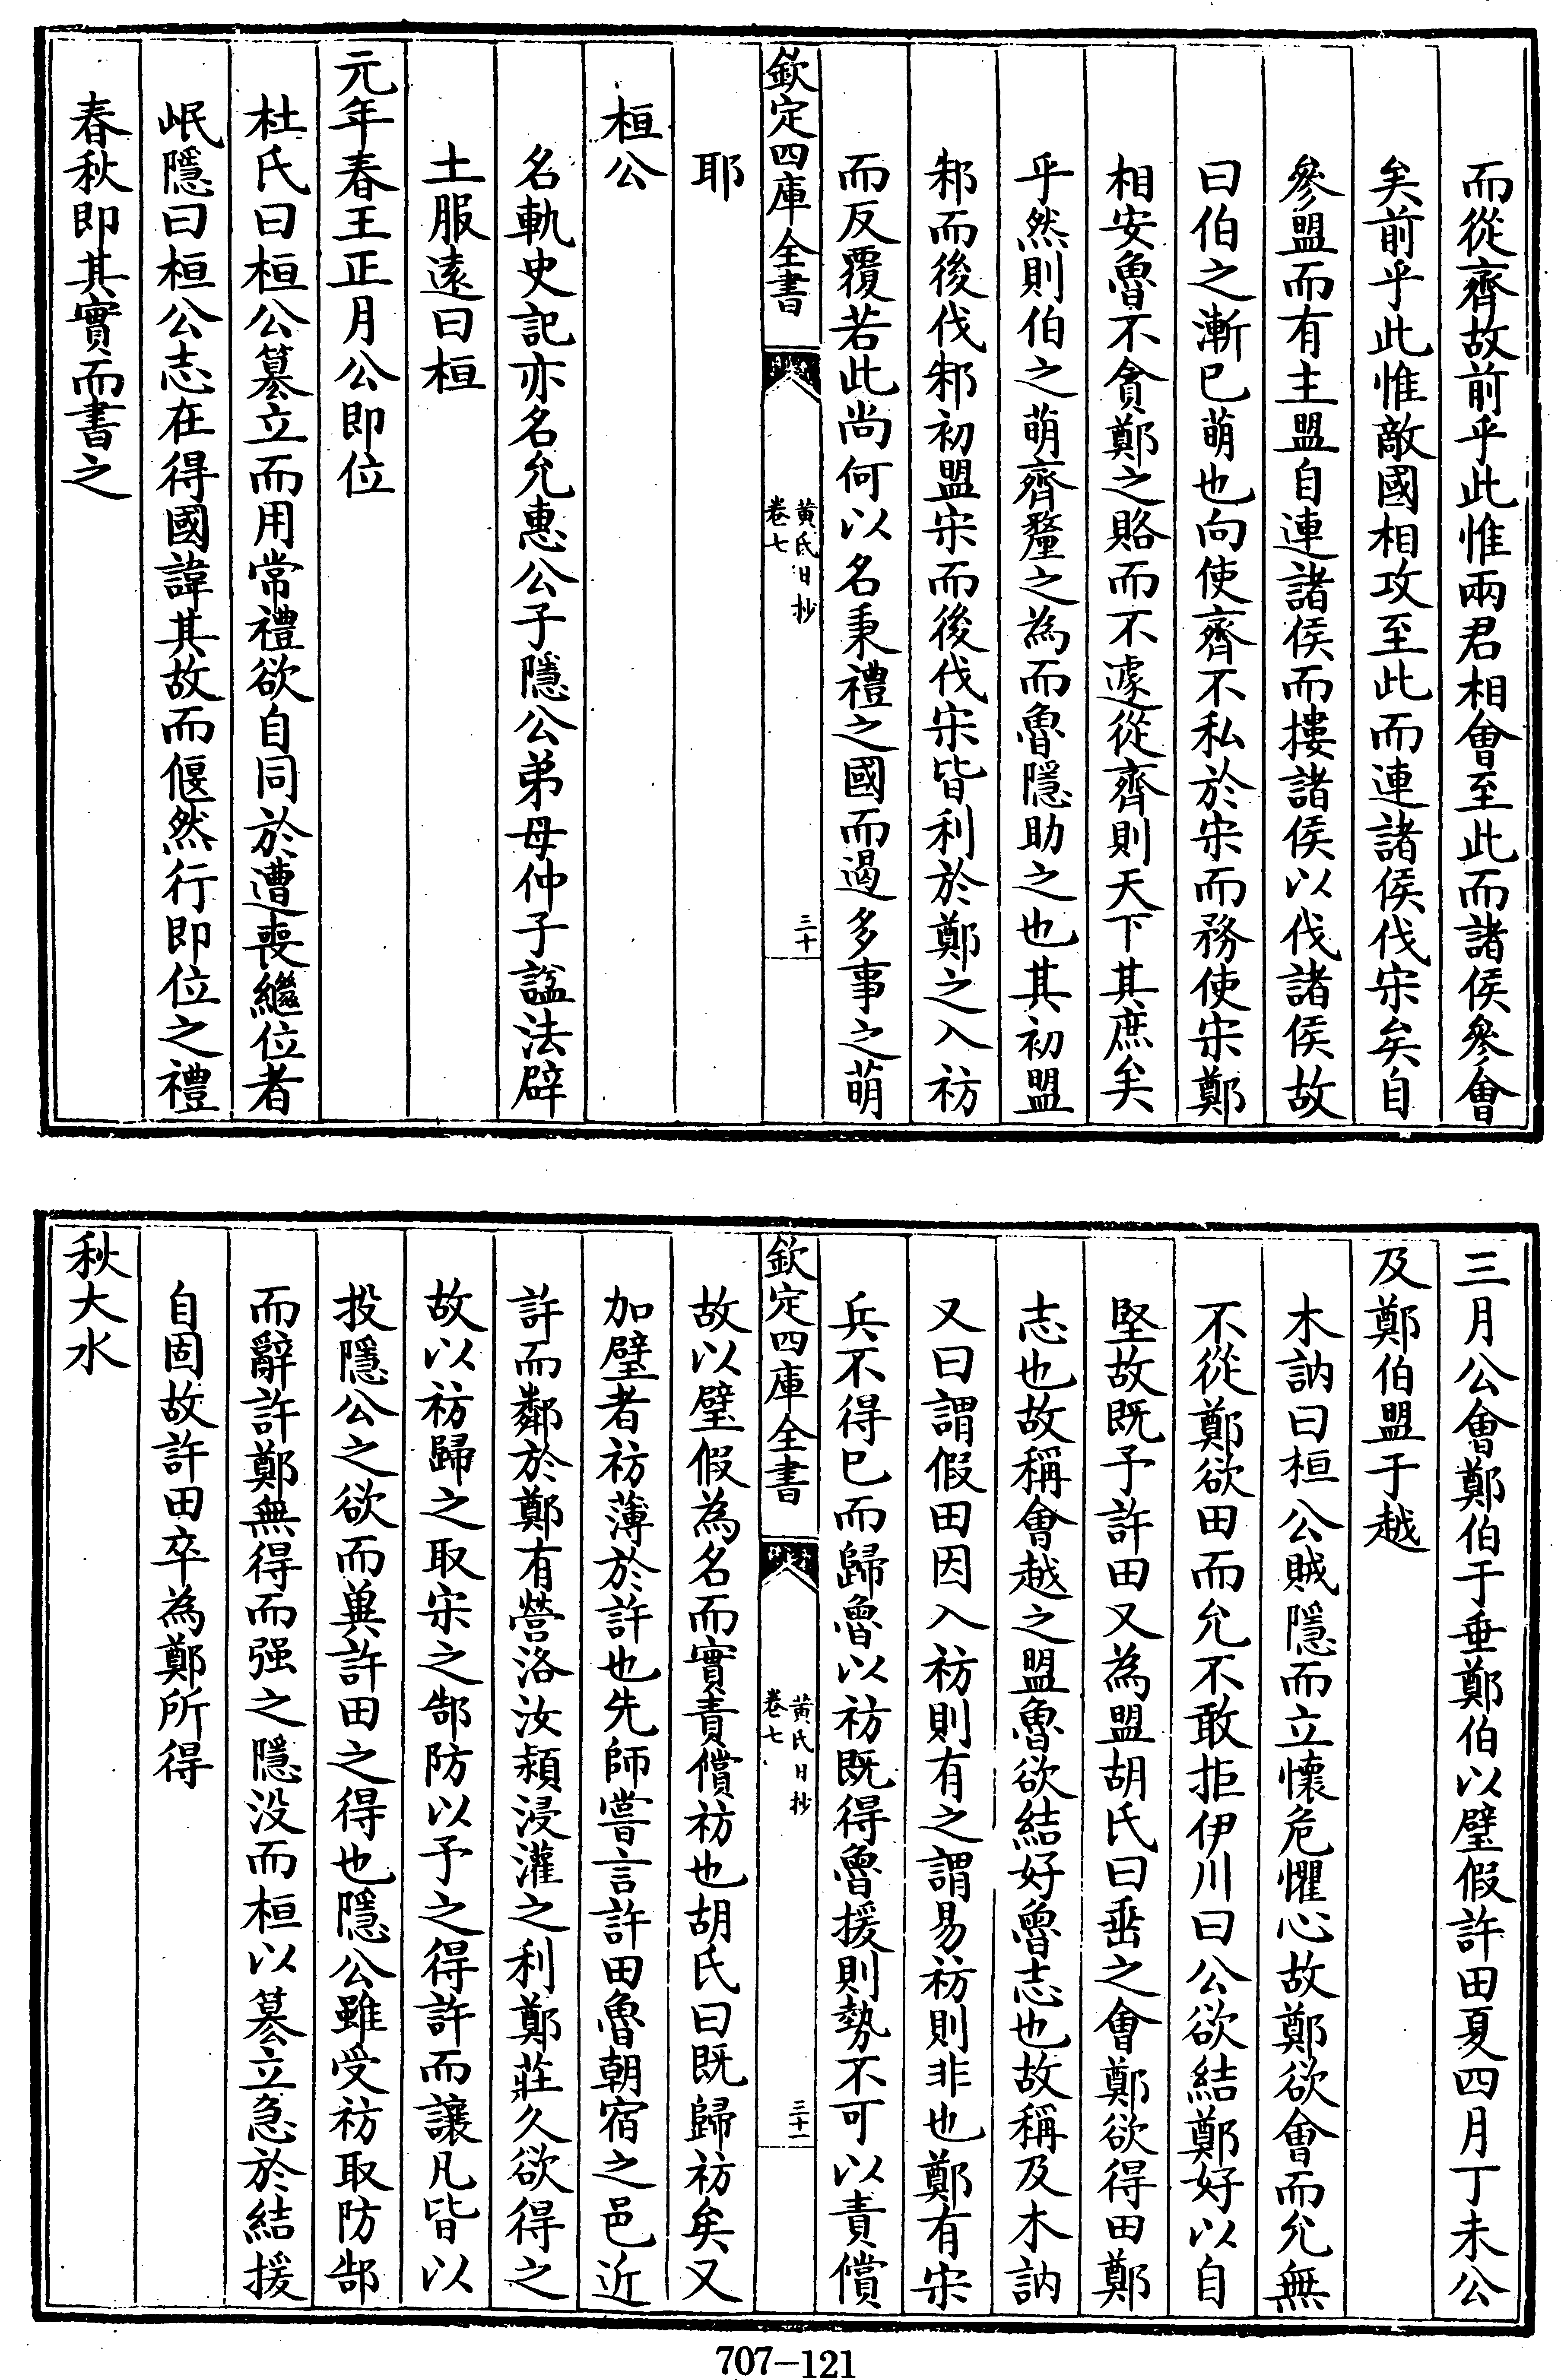 而從齊故前乎此惟兩君相會至此而諸侯參會
矣前乎此惟敵國相攻至此而連諸侯伐宋矣自
參盟而有主盟自連諸侯而摟諸侯以伐諸侯故
曰伯之漸已萌也向使齊不私於宋而務使宋鄭
相安魯不貪鄭之賂而不遽從齊則天下其庶矣
乎然則伯之萌齊釐之為而魯隱助之也其初盟
邾而後伐邾初盟宋而後伐宋皆利於鄭之入祊
而反覆若此尚何以名秉禮之國而遏多事之萌
欽定四庫全書
黄氏日抄
卷七
三十
耶
桓公
名軌史記亦名允惠公子隱公弟母仲子諡法辟
土服遠曰桓
元年春王正月公即位
杜氏曰桓公篡立而用常禮欲自同於遭喪繼位者
岷隱曰桓公志在得國諱其故而偃然行即位之禮
春秋即其實而書之
三月公會鄭伯于垂鄭伯以璧假許田夏四月丁未公
及鄭伯盟于越
木訥曰桓公賊隱而立懷危懼心故鄭欲會而允無
不從鄭欲田而允不敢拒伊川曰公欲結鄭好以自
堅故既予許田又為盟胡氏曰垂之會鄭欲得田鄭
志也故稱會越之盟魯欲結好魯志也故稱及木訥
又曰謂假田因入祊則有之謂易祊則非也鄭有宋
兵不得已而歸魯以祊既得魯援則勢不可以責償
欽定四庫全書
黄氏日抄
卷七
三十一
故以璧假為名而實責償祊也胡氏曰既歸祊矣又
加璧者祊薄於許也先師嘗言許田魯朝宿之邑近
許而鄰於鄭有營洛汝潁浸灌之利鄭莊久欲得之
故以祊歸之取宋之郜防以予之得許而讓凡皆以
投隱公之欲而兾許田之得也隱公雖受祊取防郜
而辭許鄭無得而强之隱没而桓以篡立急於結援
自固故許田卒為鄭所得
秋大水
707-121